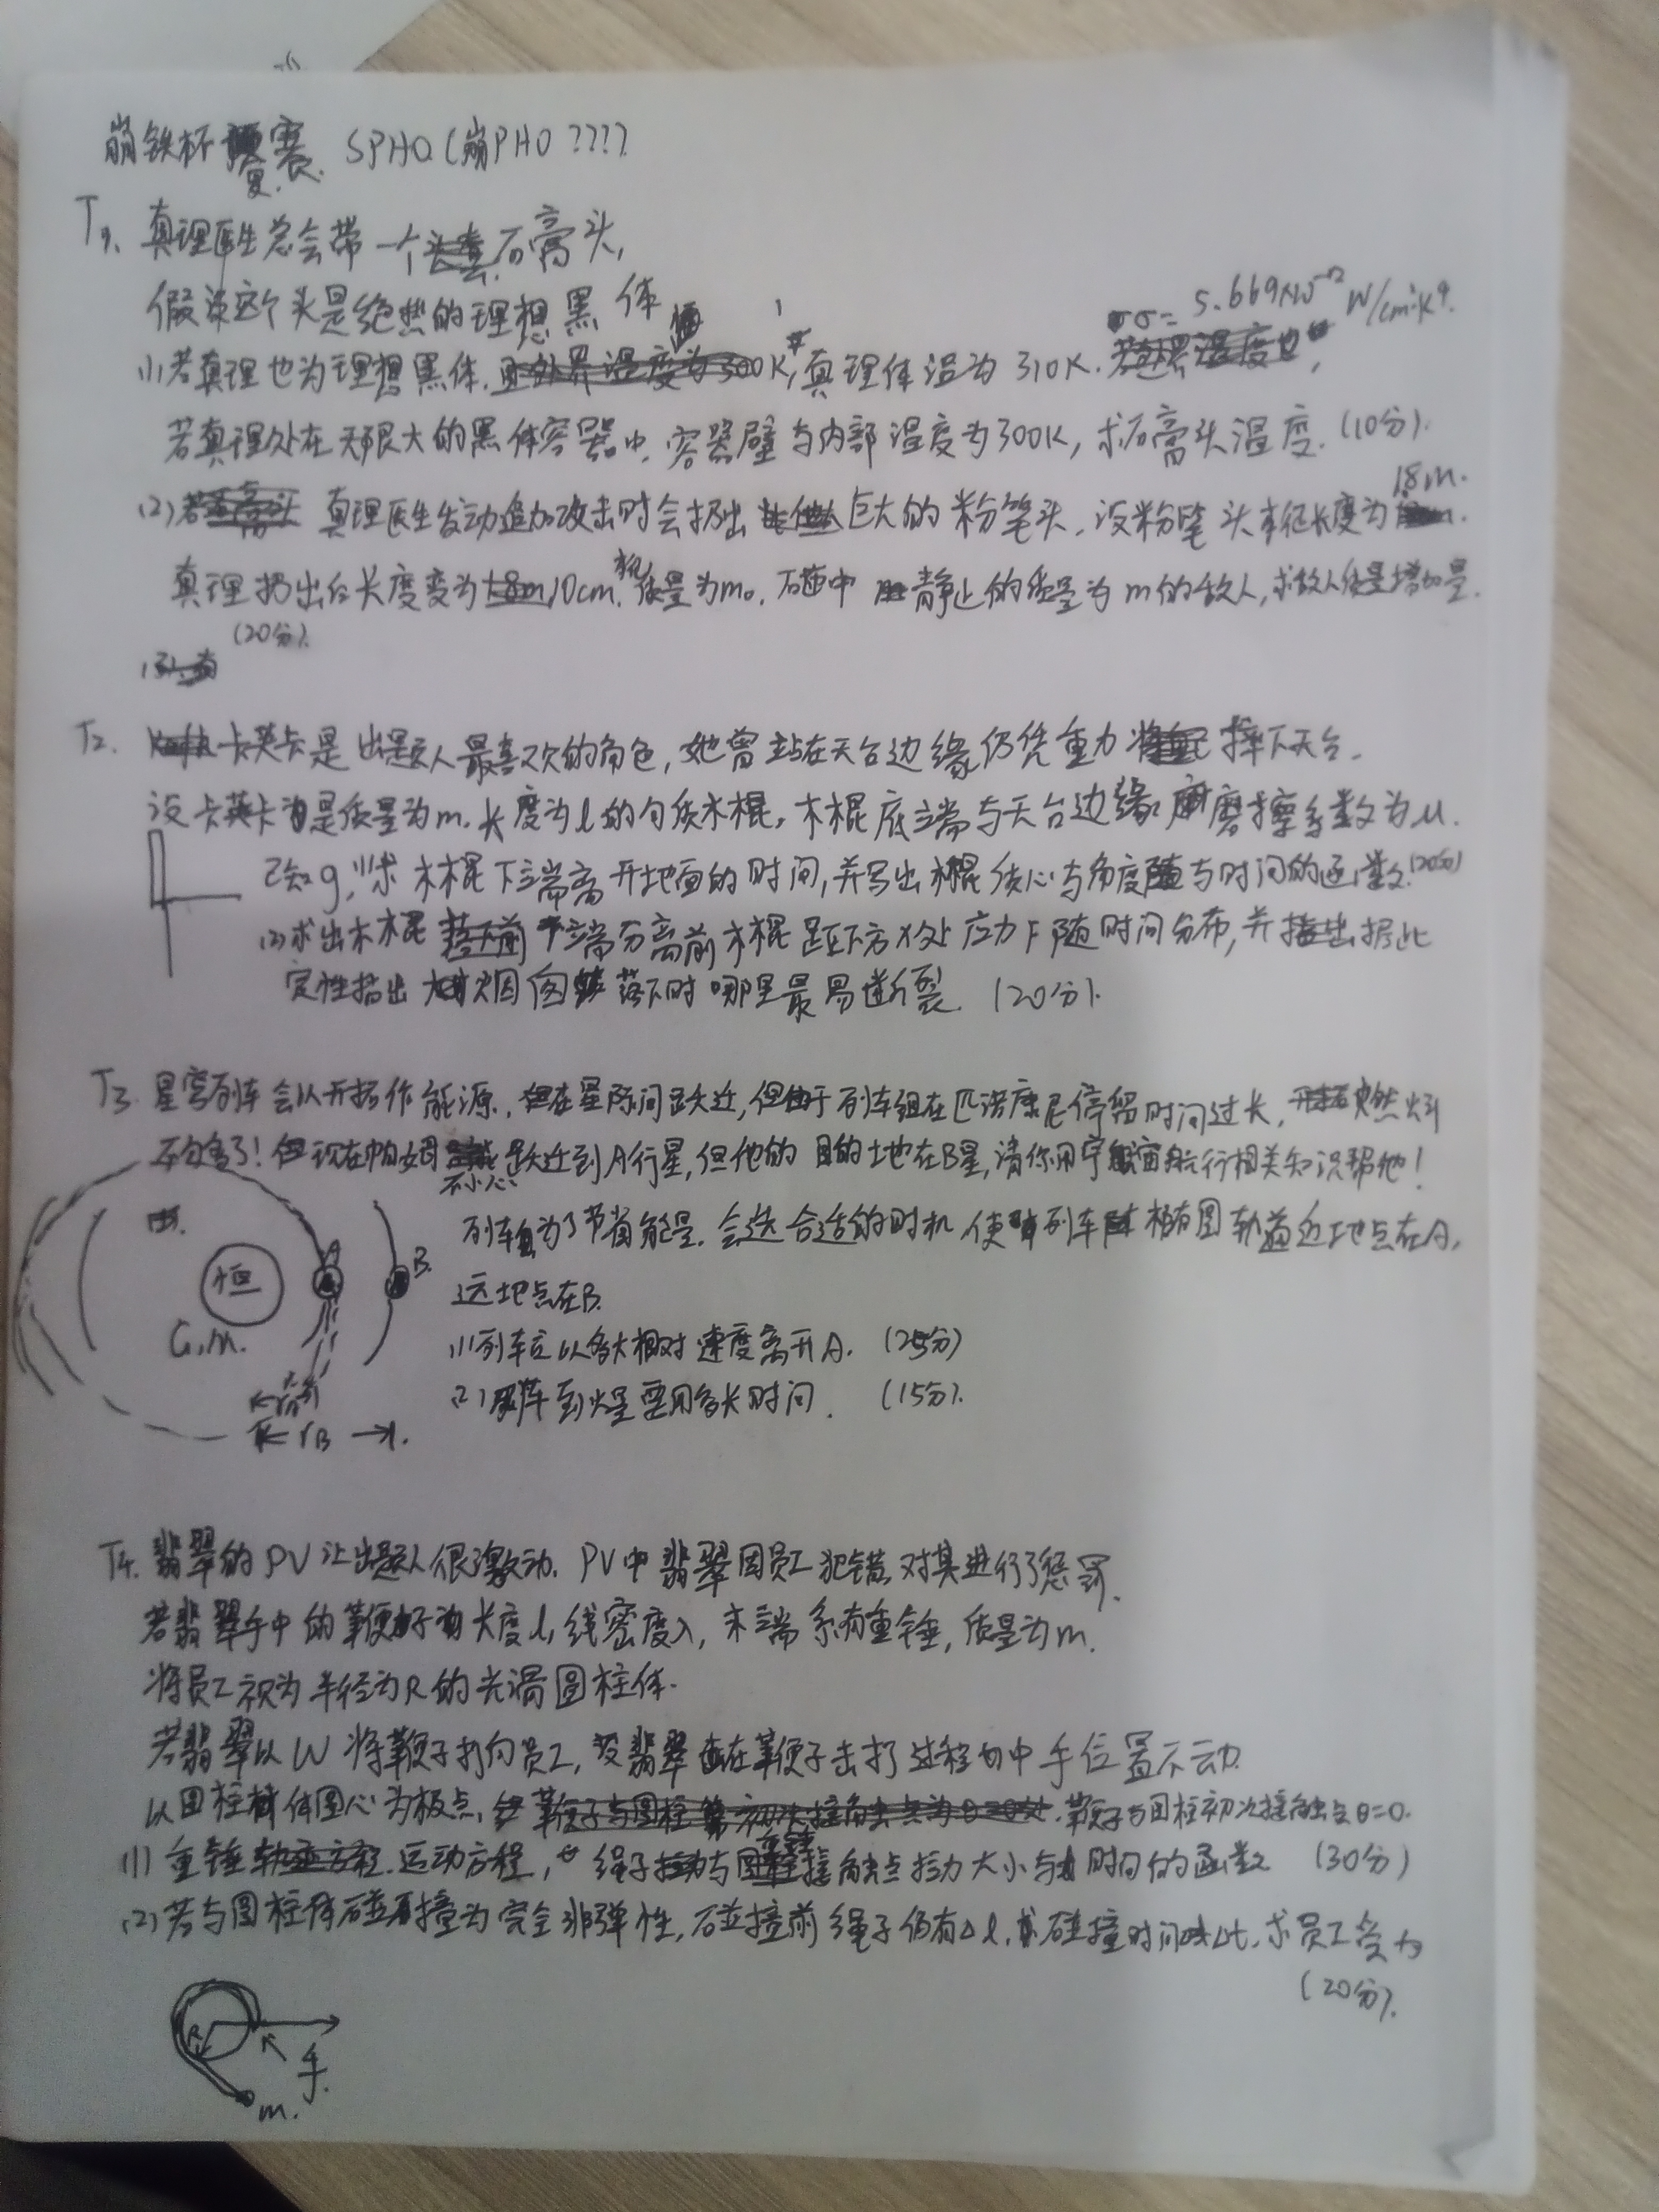 崩铁杯 复赛. SPHO (崩PHO ????)
T1. 真理医生总会带一个石膏头,
假设这个头是绝热的理想黑体
σ= 5.669×10⁻¹² W/cm²·K⁴.
(1) 若真理也为理想黑体, 真理体温为 310K.
若真理处在无限大的黑体容器中, 容器壁与内部温度为300K, 求石膏头温度. (10分).
(2) 真理医生发动追加攻击时会扔出巨大的粉笔头. 设粉笔头本征长度为 18m.
真理扔出后长度变为10cm, 质量为m₀, 砸中静止的质量为m的敌人, 求敌人质量增加量.
(20分).
T2. 卡芙卡是出题人最喜欢的角色, 她曾站在天台边缘仍凭重力摔下天台.
设卡芙卡是质量为m, 长度为l的匀质木棍, 木棍底端与天台边缘磨擦系数为μ.
已知g, (1)求木棍下端离开地面的时间, 并写出木棍质心与角度与时间的函数. (20分)
(2) 求出木棍下端分离前木棍距下方x处应力F随时间分布, 并据此
定性指出烟囱落下时哪里最易断裂. (20分).
T3. 星穹列车会以开拓作能源, 在星际间跃迁, 但由于列车组在匹诺康尼停留时间过长, 突然
不够了! 但现在帕姆不小心跃迁到A行星, 但他的目的地在B星, 请你用宇宙航行相关知识帮他!
列车为了节省能量, 会选合适的时机, 使列车椭圆轨道近地点在A,
远地点在B.
恒
A
B.
G, M.
r_B
(1) 列车应以多大相对速度离开A. (25分)
(2) 列车到火星要用多长时间. (15分).
T4. 翡翠的PV让出题人很激动. PV中翡翠因员工犯错, 对其进行了惩罚.
若翡翠手中的鞭子长度l, 线密度λ, 末端系有重锤, 质量为m.
将员工视为半径为R的光滑圆柱体.
若翡翠以W将鞭子打向员工, 设翡翠在鞭子击打过程中手位置不动.
以圆柱体圆心为极点, 鞭子与圆柱初次接触点θ=0.
(1) 重锤运动方程, 绳子与圆柱接触点拉力大小与时间的函数. (30分)
(2) 若与圆柱体碰撞为完全非弹性, 碰撞前绳子仍有Δl, 碰撞时间Δt, 求员工受力
(20分).
R
手.
m.